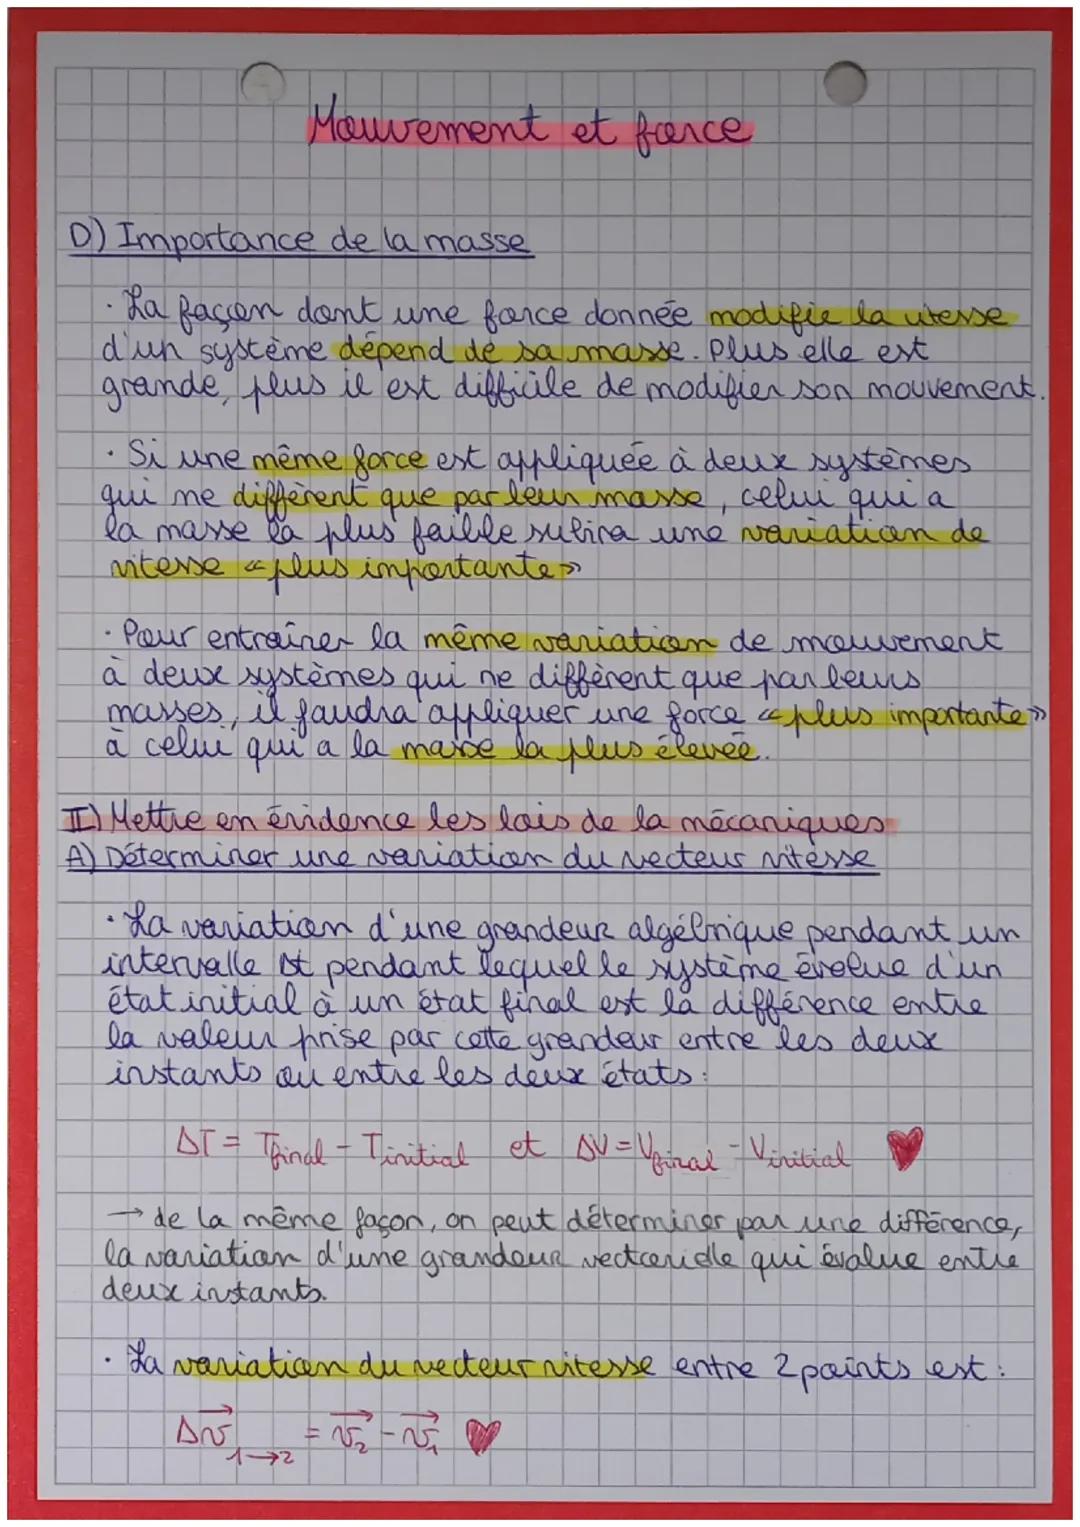 Mouvement et force
D) Importance de la masse
· La façon dont une force donnée modifie la vitesse
d'un système dépend de sa masse. Plus elle est
grande, plus il est difficile de modifier son mouvement.
· Si une même force est appliquée à deux systèmes
qui ne diffèrent que par leur masse, celui qui a
la masse la plus faible subira une variation de
vitesse « plus importante »
· Pour entraîner la même variation de mouvement
à deux systèmes qui ne diffèrent que par leurs
masses, il faudra appliquer une force « plus importante »
à celui qui a la masse la plus élevée.
II) Mettre en évidence les lois de la mécaniques
A) Déterminer une variation du vecteur vitesse
· La variation d'une grandeur algébrique pendant un
intervalle Δt pendant lequel le système évolue d'un
état initial à un état final est la différence entre
la valeur prise par cette grandeur entre les deux
instants ou entre les deux états :
ΔT = Tfinal - Tinitial et ΔV = Vfinal - Vinitial ♥
→ de la même façon, on peut déterminer par une différence,
la variation d'une grandeur vectorielle qui évolue entre
deux instants.
· La variation du vecteur vitesse entre 2 points est :
Δv⃗ 1→2 = v⃗₂ - v⃗₁ ♥